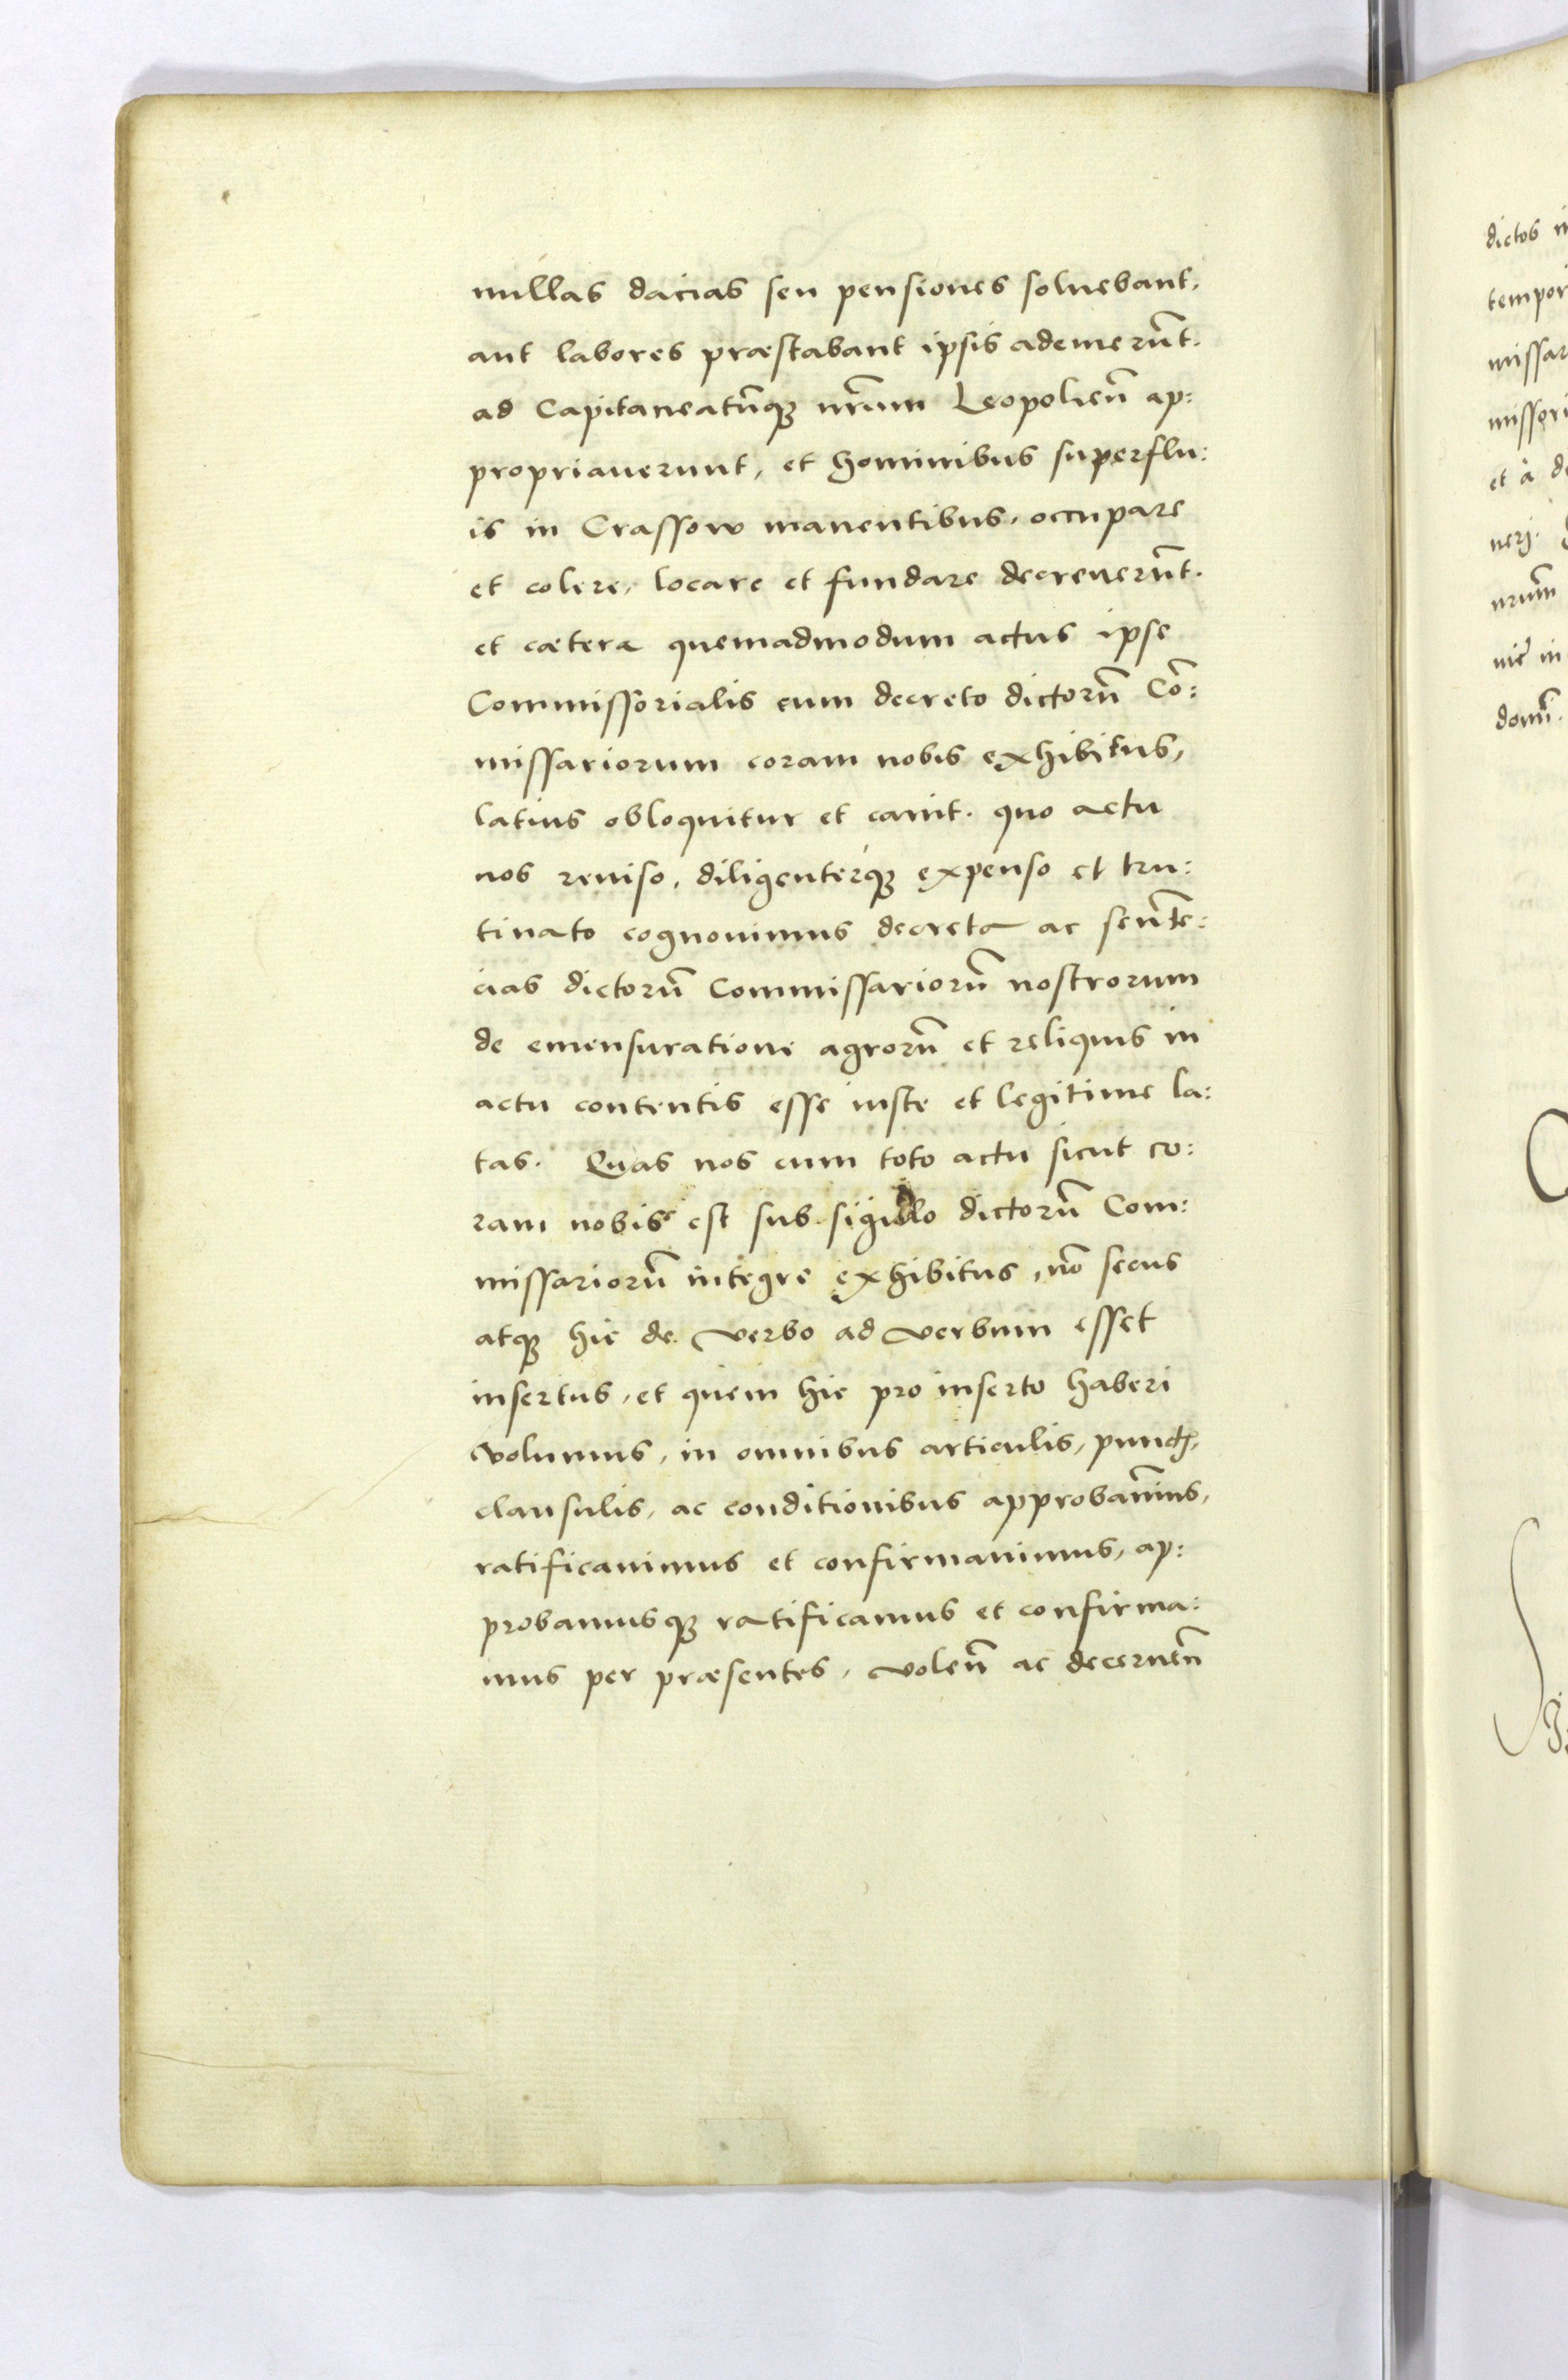 nullas dacias seu pensiones soluebant,
aut labores præstabant ipsis ademerūt.
ad Capitaneatūq₃ nr̃um Leopolieñ ap:
propriauerunt, et hominibus superflu:
is in Crassow manentibus, occupare
et colere, locare et fundare decreuerūt.
et cætera quemadmodum actus ipse
Commissorialis cum decreto dictorū Cō:
missariorum coram nobis exhibitus,
latius obloquitur et canit. quo actu
nos reuiso, diligenterq₃ expenso et tru:
tinato cognouimus decreta ac senñte:
cias dictorū Commissariorū nostrorum
de emensuratione agrorū et reliquis in
actu contentis esse iuste et legitime la:
tas. Quas nos cum toto actu sicut co:
ram nobis est sub sigillo dictorū Com:
missariorū integre exhibitus, nō secus
atq₃ hic de verbo ad verbum esset
insertus, et quem hic pro inserto haberi
volumus, in omnibus articulis, punctꝭ,
clausulis, ac conditionibus approbauim̄us,
ratificauimus et confirmauimus, ap:
probamusq₃ ratificamus et confirma:
mus per præsentes, voleñ ac decerneñ
dictos
tempor
missar
missori
et à
nerj.
nrum̃
domĩ.